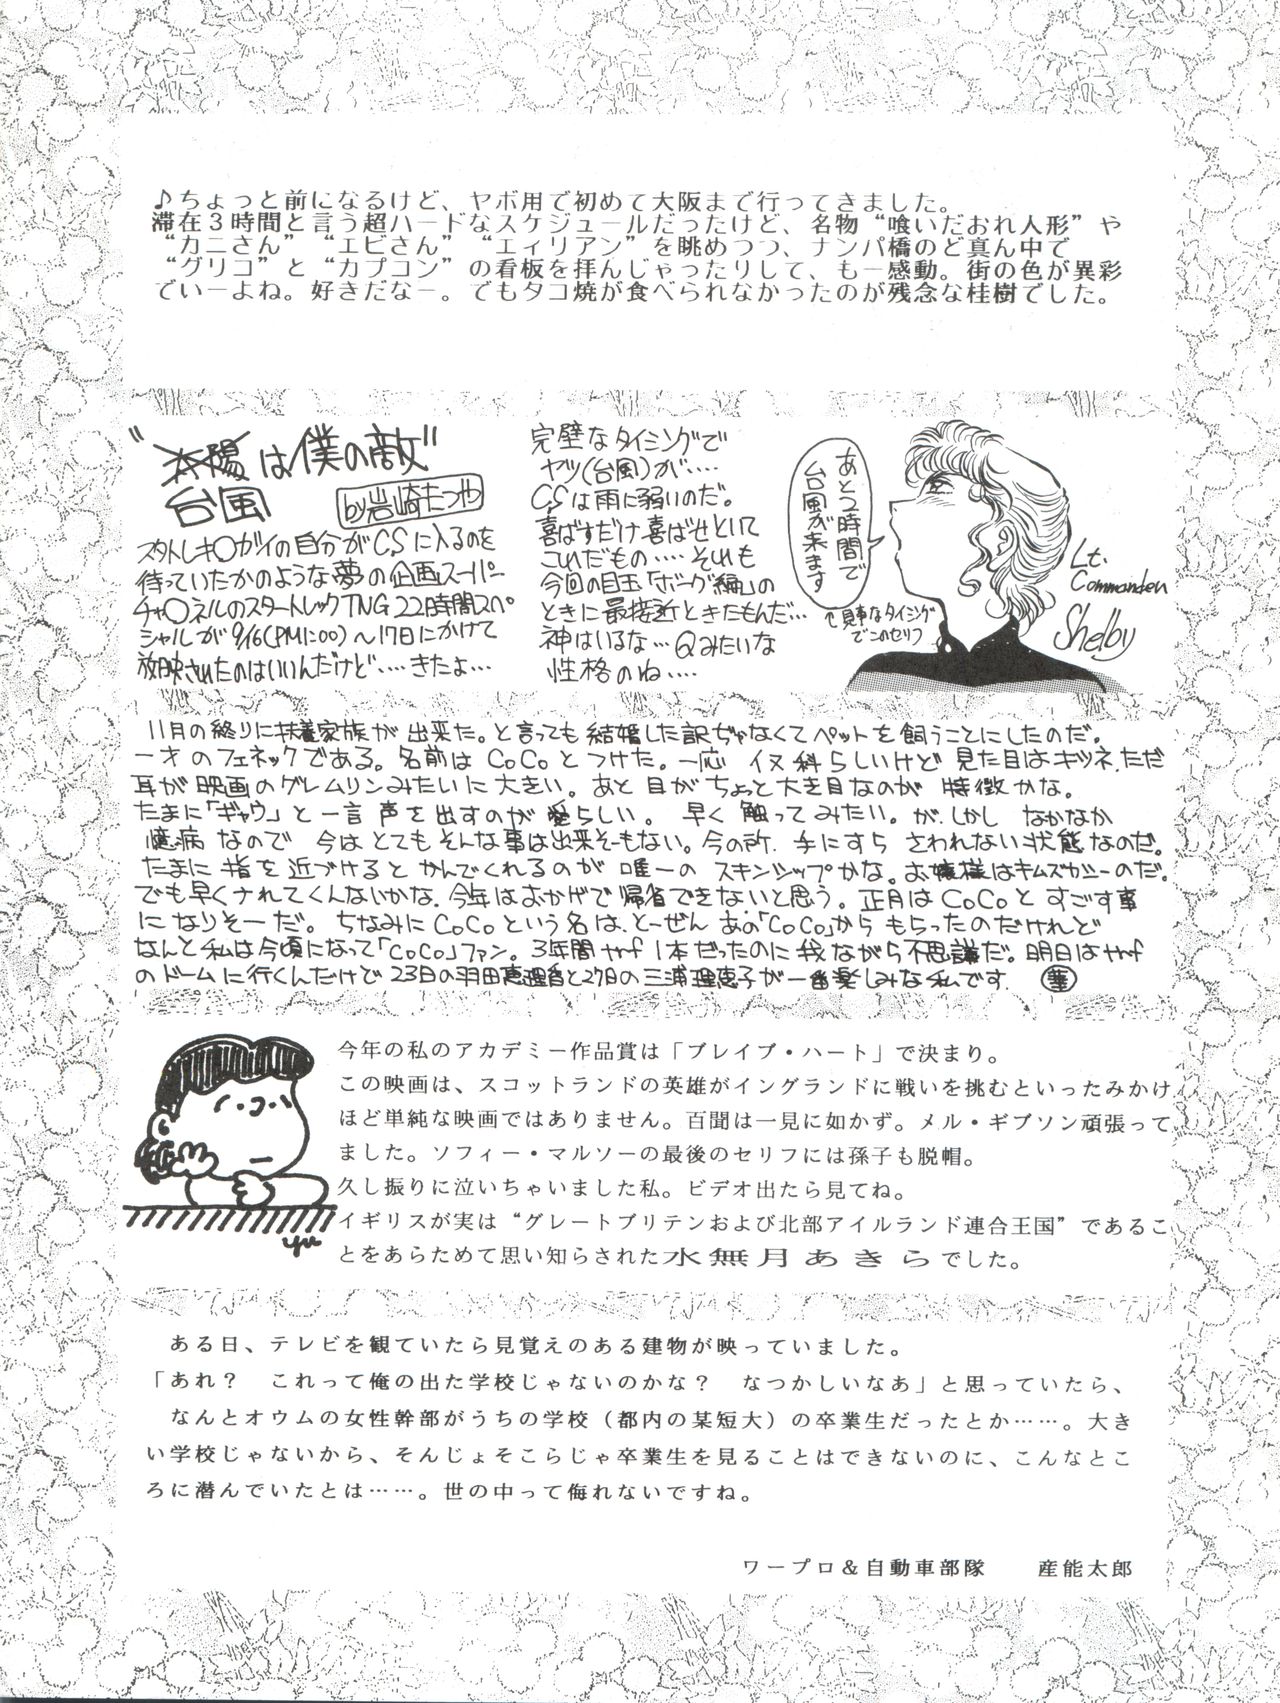 ♪ちょっと前になるけど、ヤボ用で初めて大阪まで行ってきました。
滞在３時間と言う超ハードなスケジュールだったけど、名物“喰いだおれ人形”や
“カニさん”“エビさん”“エィリアン”を眺めつつ、ナンパ橋のど真ん中で
“グリコ”と“カプコン”の看板を拝んじゃったりして、も一感動。街の色が異彩
でいーよね。好きだなー。でもタコ焼が食べられなかったのが残念な桂樹でした。
"太陽は僕の敵"
台風
by岩崎たつや
スタトレキ〇ガイの自分がCSに入るのを
待っていたかのような夢の企画スーパー
チャ〇ネルのスタートレックTNG22時間スペ
シャルが9/16(PM1:00)〜17日にかけて
放映されたのはいいんだけど‥‥きたよ‥‥
完璧なタイミングで
ヤツ(台風)が‥‥
CSは雨に弱いのだ。
喜ばすだけ喜ばせといて
これだもの‥‥それも
今回の目玉「ボーグ編」の
ときに最接近ときたもんだ‥‥
神はいるな‥‥Qみたいな
性格のね‥‥
あと2時間で
台風が来ます
↑見事なタイミング
でこのセリフ
Lt.
Commander
Shelby
11月の終りに扶養家族が出来た。と言っても結婚した訳ぢゃなくてペットを飼うことにしたのだ。
一才のフェネックである。名前はCoCoとつけた。一応イヌ科らしいけど見た目はキツネ、ただ
耳が映画のグレムリンみたいに大きい。あと目がちょっと大き目なのが特徴かな。
たまに「ギャウ」と一言声を出すのが愛らしい。早く触ってみたい。が、しかしなかなか
憶病なので今はとてもそんな事は出来そーもない。今の所、手にすらさわれない状態なのだ。
たまに指を近づけるとかんでくれるのが唯一のスキンシップかな。お嬢様はキムズカシーのだ。
でも早くなれてくんないかな。今年はおかげで帰省できないと思う。正月はCoCoとすごす事
になりそーだ。ちなみにCoCoという名は、とーぜんあの「CoCo」からもらったのだけれど
なんと私は今頃になって「CoCo」ファン。3年間ヤf1本だったのに我ながら不思議だ。明日はヤf
のドームに行くんだけど23日の羽田恵理香と27日の三浦理恵子が一番楽しみな私です。
今年の私のアカデミー作品賞は「ブレイブ・ハート」で決まり。
この映画は、スコットランドの英雄がイングランドに戦いを挑むといったみかけ
ほど単純な映画ではありません。百聞は一見に如かず。メル・ギブソン頑張って
ました。ソフィー・マルソーの最後のセリフには孫子も脱帽。
久し振りに泣いちゃいました私。ビデオ出たら見てね。
イギリスが実は“グレートブリテンおよび北部アイルランド連合王国”であるこ
とをあらためて思い知らされた水無月あきらでした。
yu
ある日、テレビを観ていたら見覚えのある建物が映っていました。
「あれ？　これって俺の出た学校じゃないのかな？　なつかしいなあ」と思っていたら、
なんとオウムの女性幹部がうちの学校（都内の某短大）の卒業生だったとか……。大き
い学校じゃないから、そんじょそこらじゃ卒業生を見ることはできないのに、こんなとこ
ろに潜んでいたとは……。世の中って侮れないですね。
ワープロ＆自動車部隊　　産能太郎